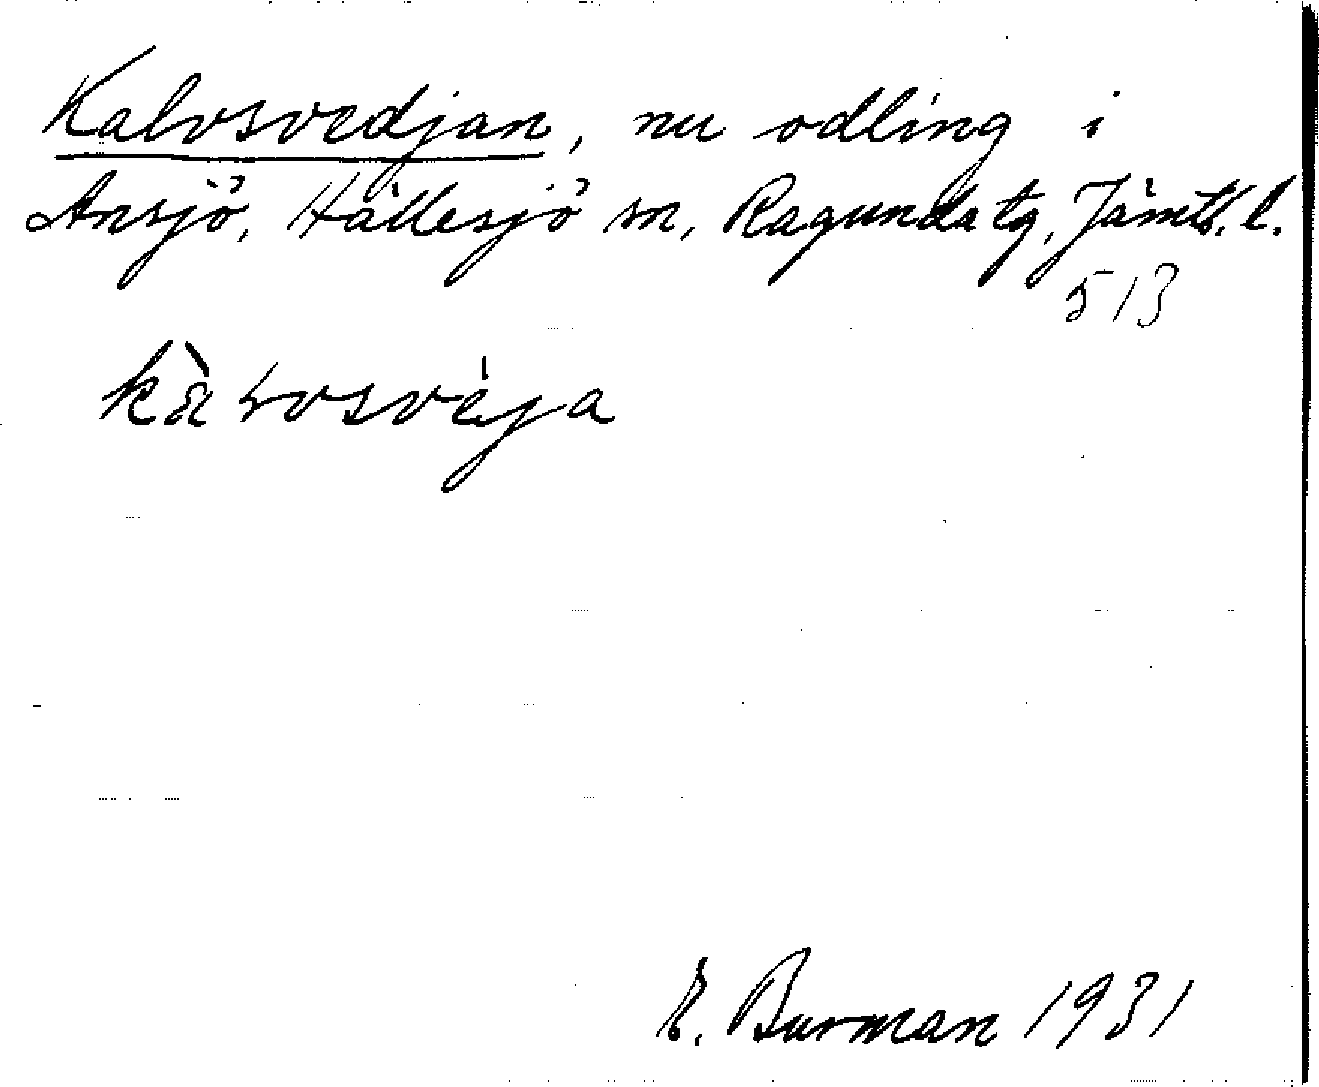 Kalvsvedjan, nu odling i
Ansjö, Hällesjö sn, Ragunda tg, Jämtl. l.
513
E. Burman 1931